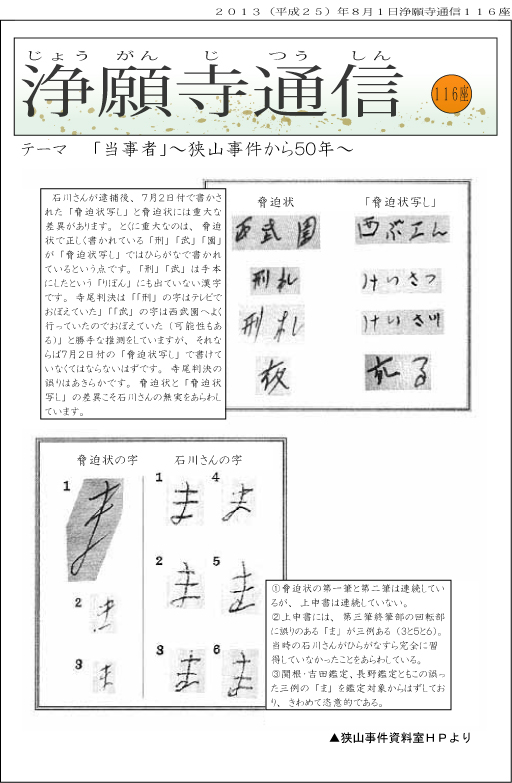 ２０１３（平成２５）年８月１日浄願寺通信１１６座
じょう がん じ つう しん
浄願寺通信
116座
テーマ 「当事者」～狭山事件から50年～
石川さんが逮捕後、７月２日付で書かさ
れた「脅迫状写し」と脅迫状には重大な
差異があります。とくに重大なのは、脅迫
状で正しく書かれている「刑」「武」「園」
が「脅迫状写し」ではひらがなで書かれ
ているという点です。「刑」「武」は手本
にしたという「りぼん」にも出ていない漢字
です。寺尾判決は「「刑」の字はテレビで
おぼえていた」「「武」の字は西武園へよく
行っていたのでおぼえていた（可能性もあ
る）」と勝手な推測をしていますが、それな
らば７月２日付の「脅迫状写し」で書けて
いなくてはならないはずです。寺尾判決の
誤りはあきらかです。脅迫状と「脅迫状
写し」の差異こそ石川さんの無実をあらわし
ています。
脅迫状 「脅迫状写し」
西武園 西ぶエん
刑札 けいさつ
刑札 けいさツ
夜
脅迫状の字 石川さんの字
1 ま 1 ま 4 ま
2 ま 2 ま 5 ま
3 ま 3 ま 6 ま
①脅迫状の第一筆と第二筆は連続してい
るが、上申書は連続していない。
②上申書には、第三筆終筆部の回転部
に誤りのある「ま」が三例ある（3と5と6）。
当時の石川さんがひらがなすら完全に習
得していなかったことをあらわしている。
③関根・吉田鑑定、長野鑑定ともこの誤っ
た三例の「ま」を鑑定対象からはずしてお
り、きわめて恣意的である。
▲狭山事件資料室ＨＰより